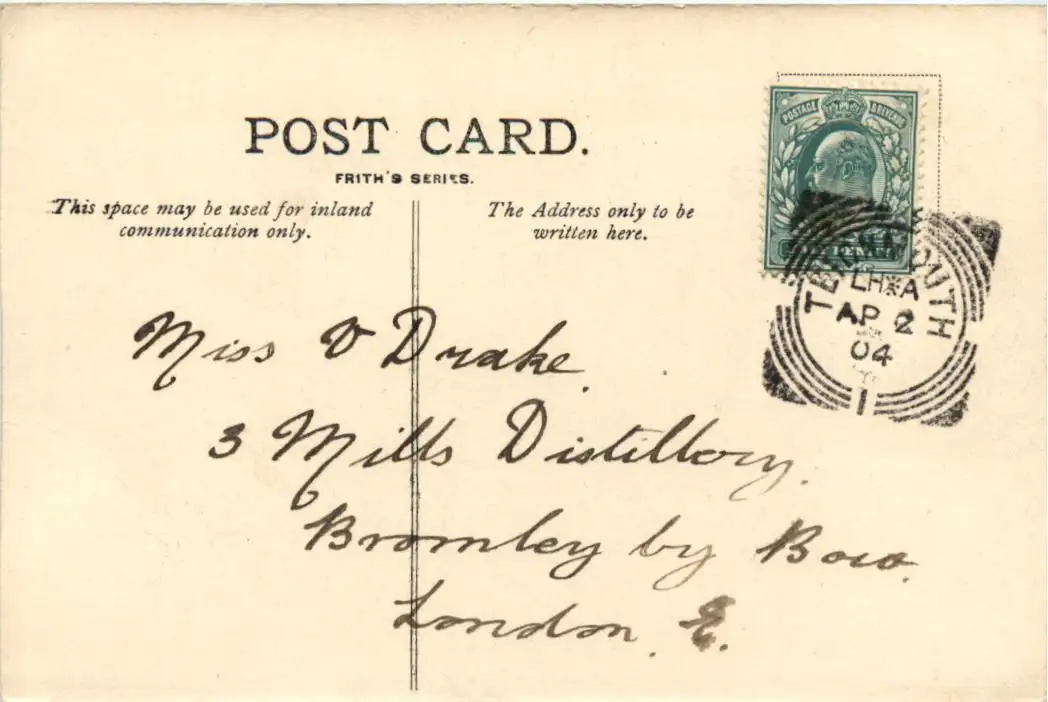 POST CARD.
FRITH'S SERIES.
This space may be used for inland
communication only.
The Address only to be
written here.
POSTAGE & REVENUE
PENNY
TEIGNMOUTH
LH*A
AP 2
04
1
Miss V Drake.
3 Mills Distillery.
Bromley by Bow.
London. E.